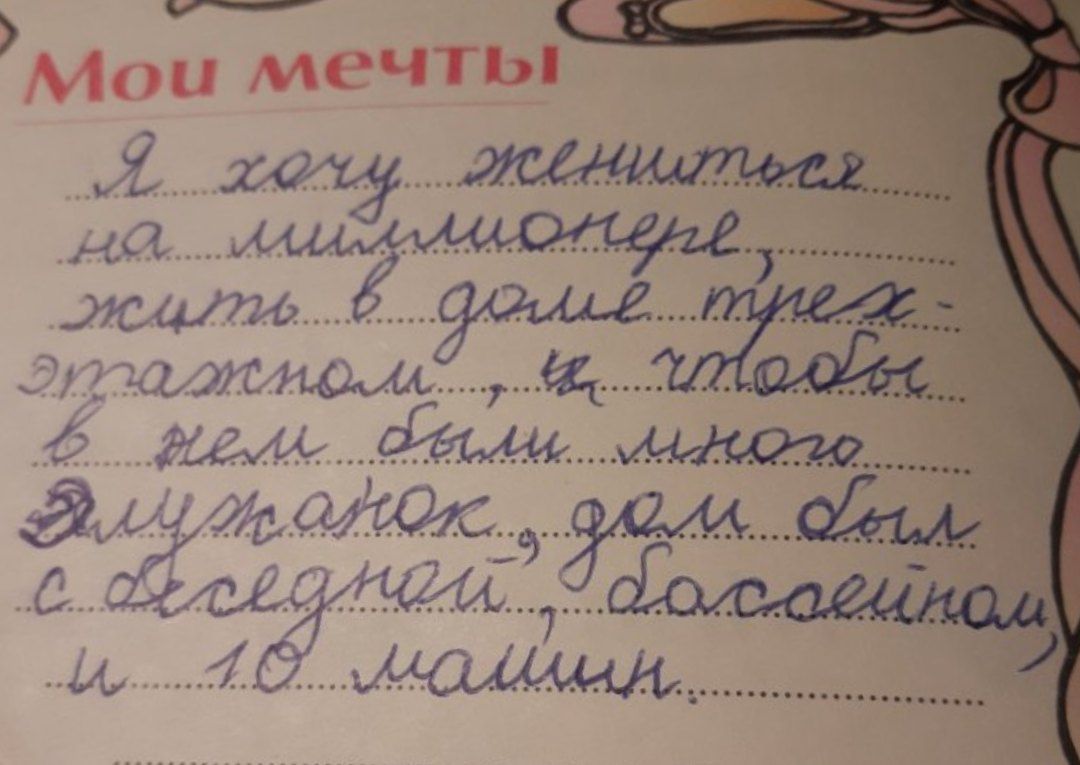 Мои мечты
Я хочу жениться
на миллионере,
жить в доме трех-
этажном, и чтобы
в нем были много
служанок, дом был
с беседной, бассейном,
и 10 машин.